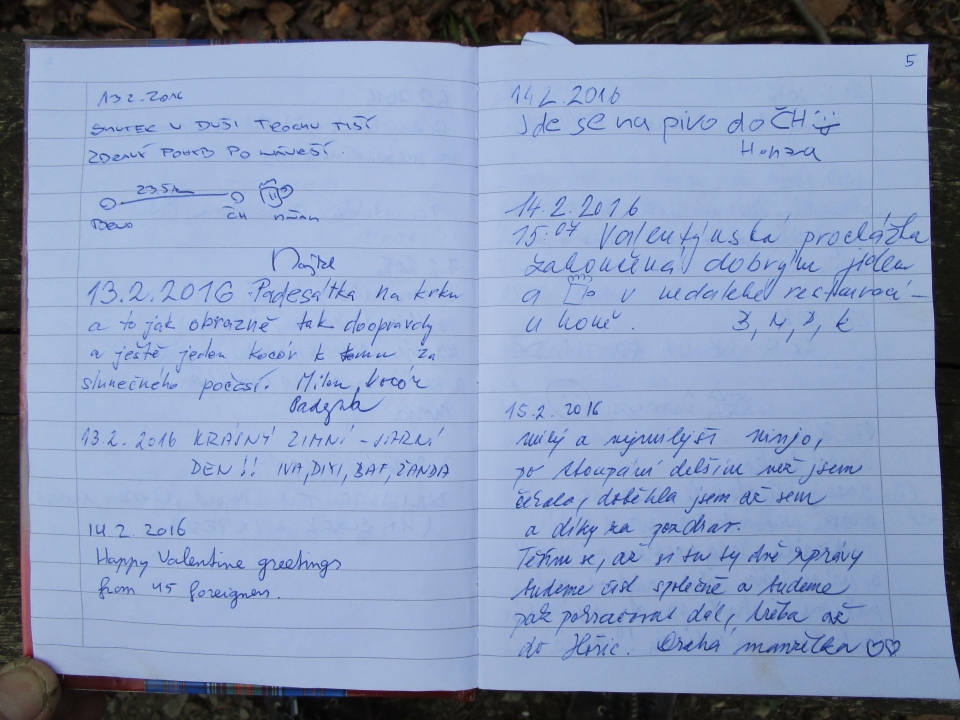 13.2.2016
SMUTEK V DUŠI TROCHU TIŠÍ
PO
23.5km
ČH
13.2.2016 Padesátka na krku
a to jak obrazně tak doopravdy
a ještě jeden kocór k tomu za
slunečného počasí. Milan, kocór
13.2.2016 KRÁSNÝ ZIMNÍ - JARNÍ
DEN!! IVA, DIXI, BAF, ŽANDA
14.2.2016
Happy Valentine greetings
from 45 foreigners.
5
14.2.2016
Jde se na pivo do ČH
Honza
14.2.2016
15.07 Valentýnská procházka
zakončená dobrým jídlem
a v nedaleké restauraci -
u koně.
15.2.2016
milý a nejmilejší
po stoupání delším než jsem
čekala, doběhla jsem až sem
a díky za pozdrav.
Těším se, až si tu ty dvě zprávy
budeme číst společně a budeme
pak pokračovat dál, třeba až
do Hořic. Drahá manželka ♡♡